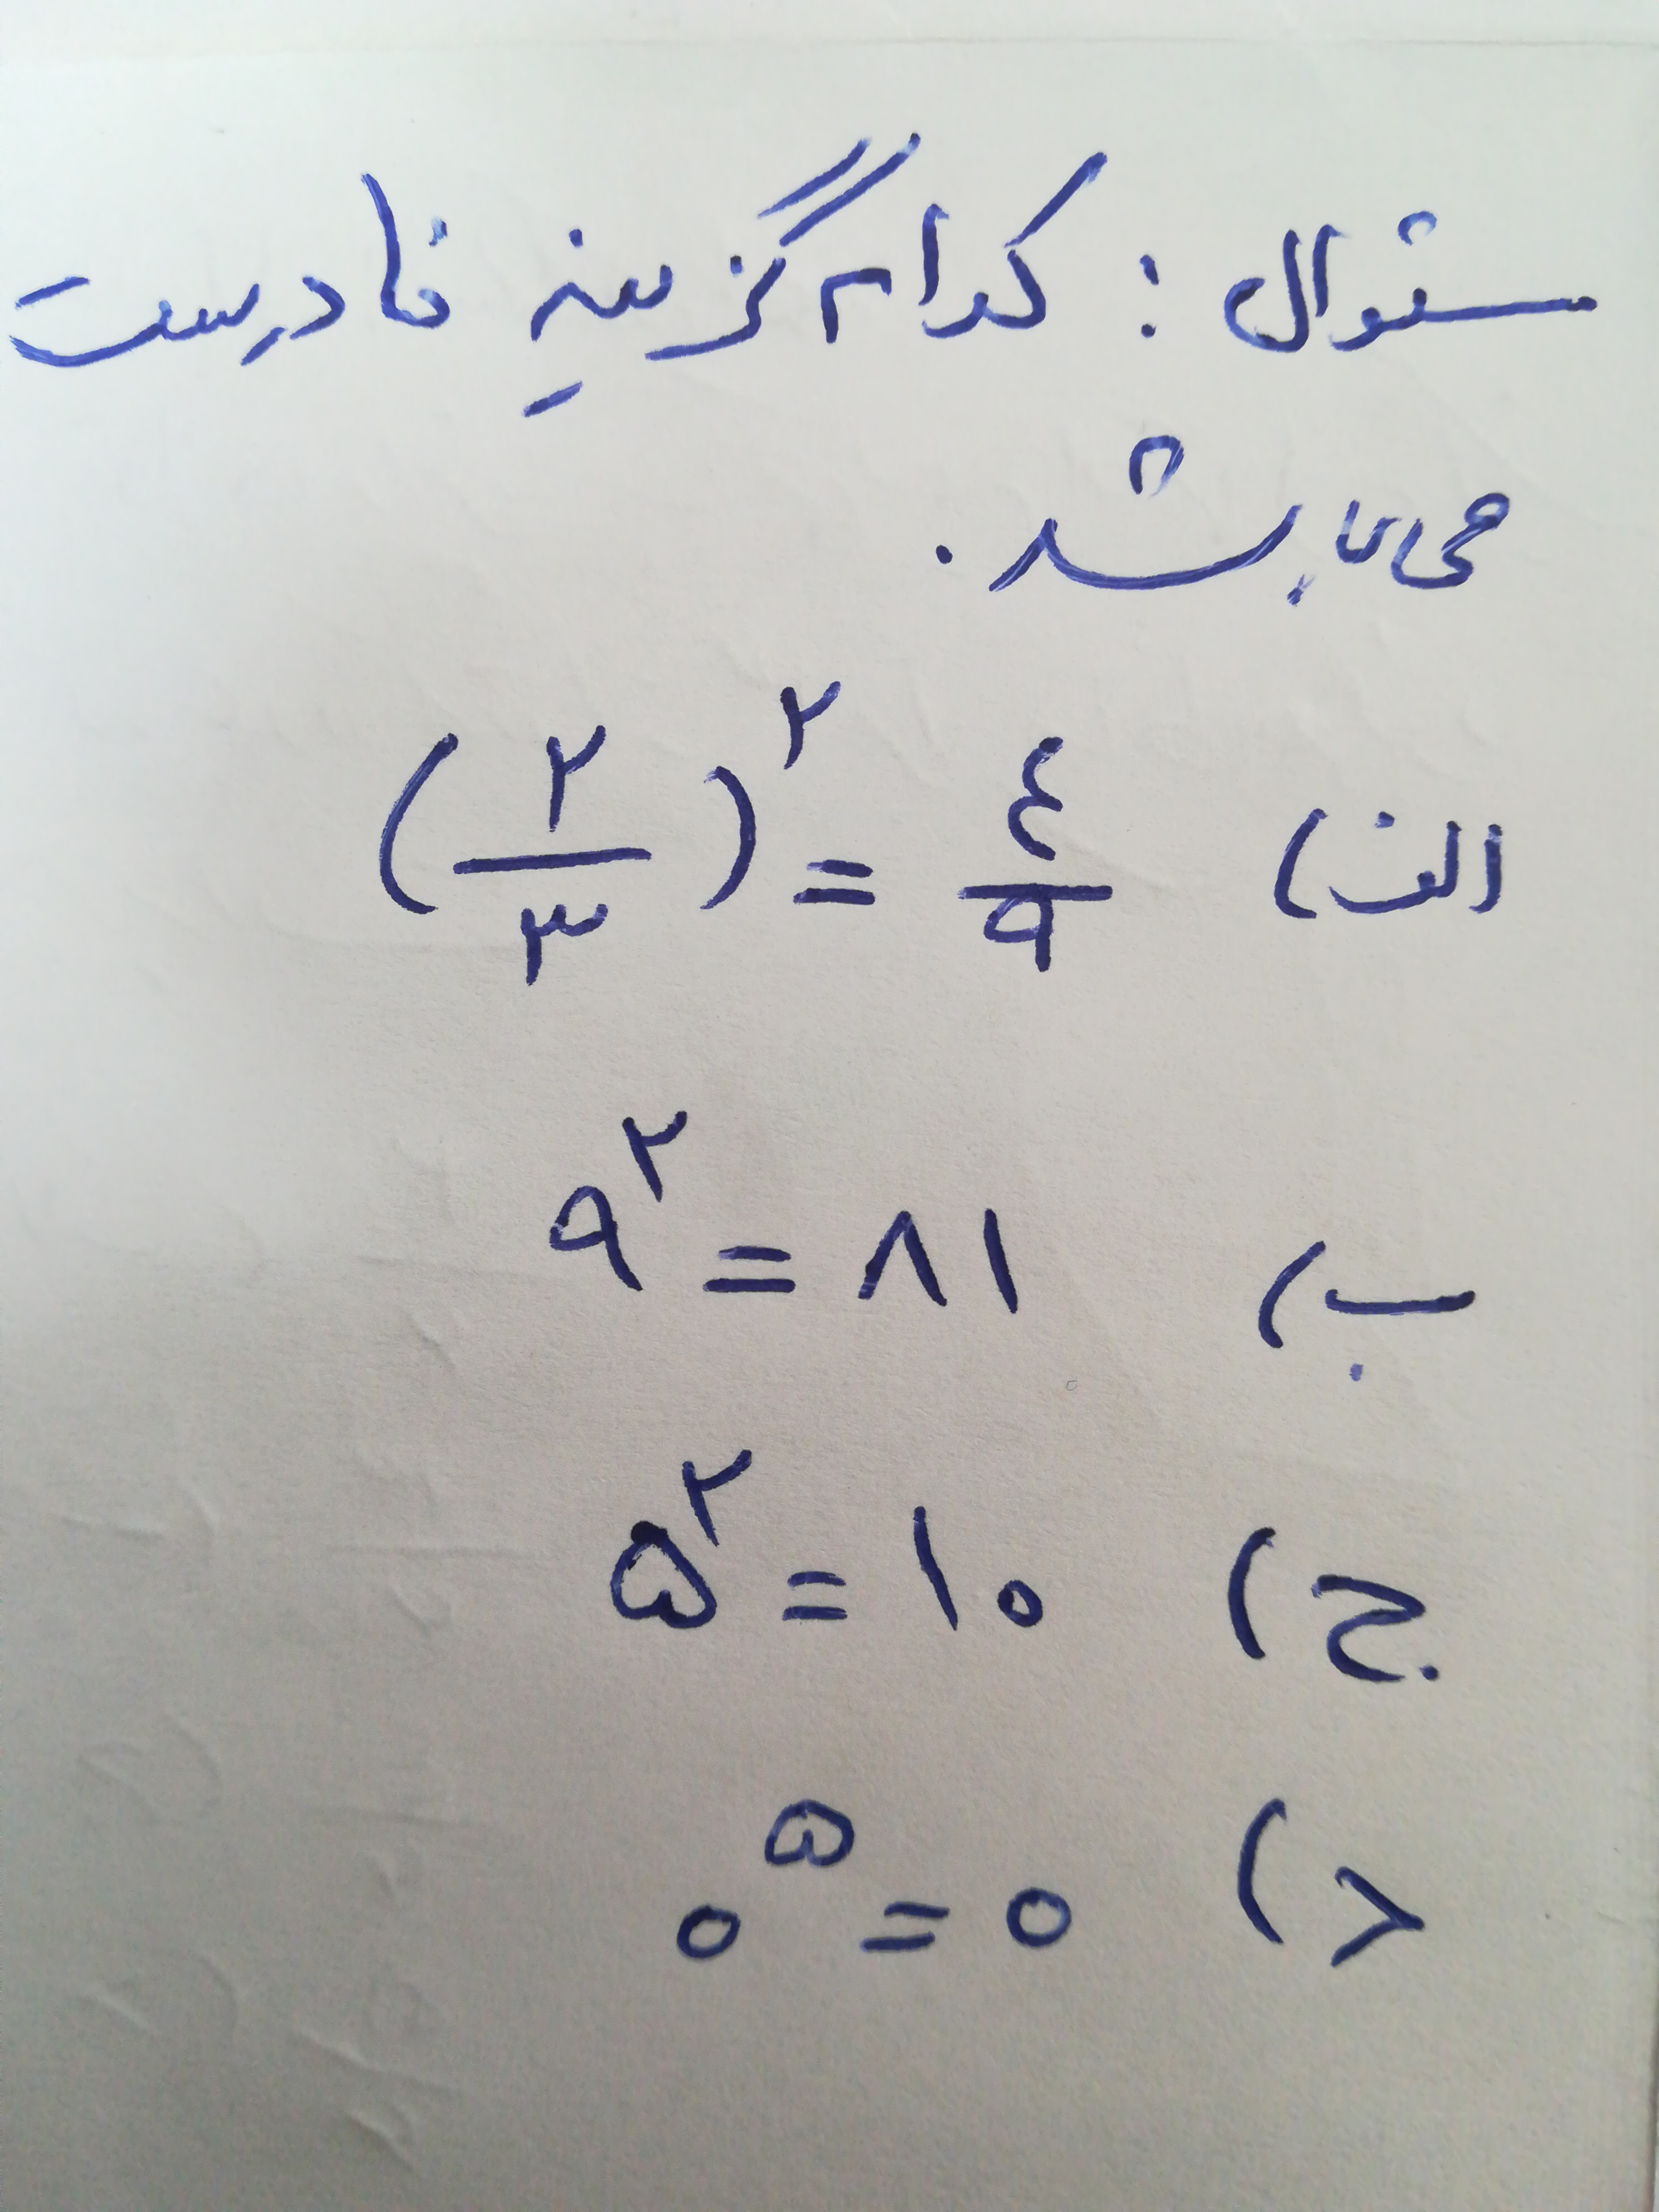 سئوال : کدام گزینهِ نادرست
می باشد .
الف) (۲/۳)^۲ = ٤/۹
ب) ۹^۲ = ۸۱
ج) ۵^۲ = ۱۰
د) ۰^۵ = ۰